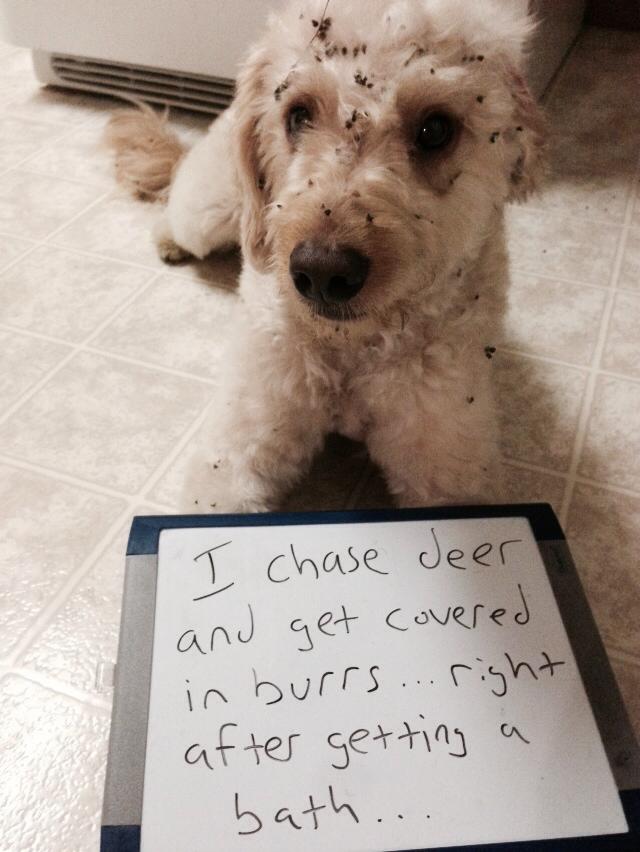 I chase deer
and get covered
in burrs... right
after getting a
bath...